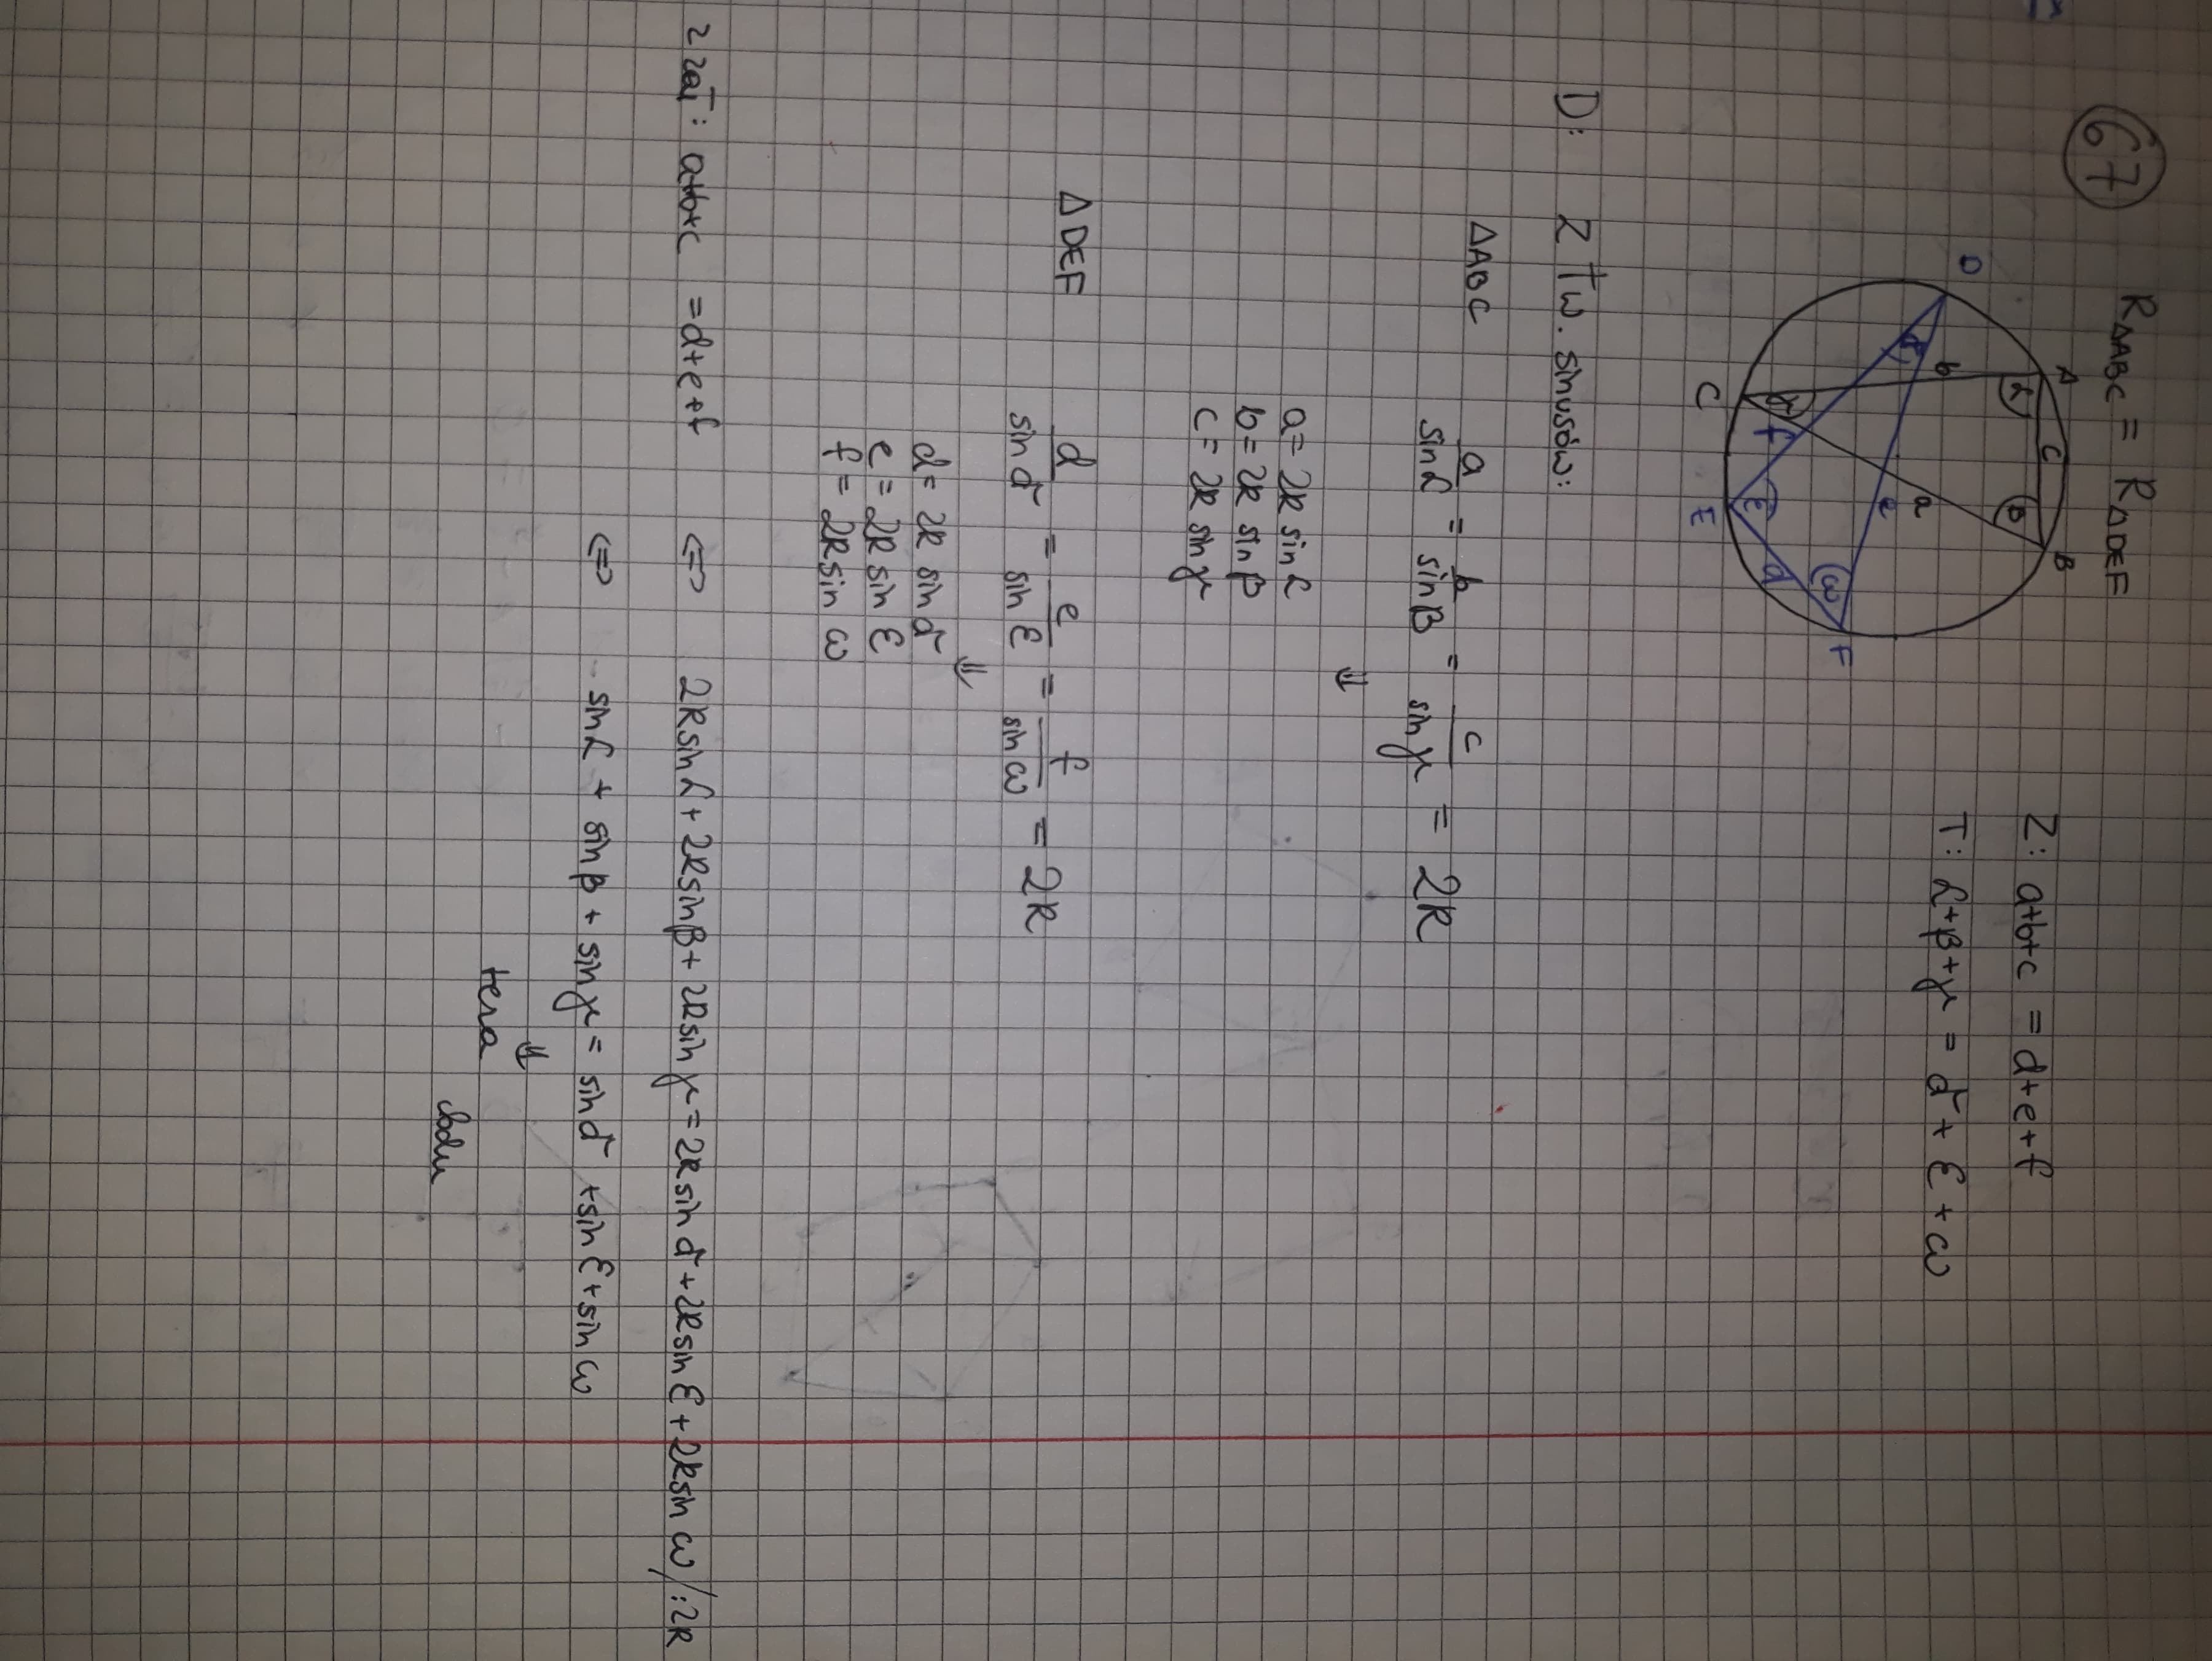 67
R△ABC = R△DEF
Z: a+b+c = d+e+f
T: α+β+γ = δ+ε+ω
D
A
B
C
E
F
α
β
γ
δ
ε
ω
a
b
c
d
e
f
D: Z tw. sinusów:
△ABC
a/sinα = b/sinβ = c/sinγ = 2R
⇓
a = 2R sinα
b = 2R sinβ
c = 2R sinγ
△DEF
d/sinδ = e/sinε = f/sinω = 2R
⇓
d = 2R sinδ
e = 2R sinε
f = 2R sinω
z zał: a+b+c = d+e+f ⇔ 2Rsinα + 2Rsinβ + 2Rsinγ = 2Rsinδ + 2Rsinε + 2Rsinω /:2R
⇔ sinα + sinβ + sinγ = sinδ + sinε + sinω
⇓
teza
cbdu